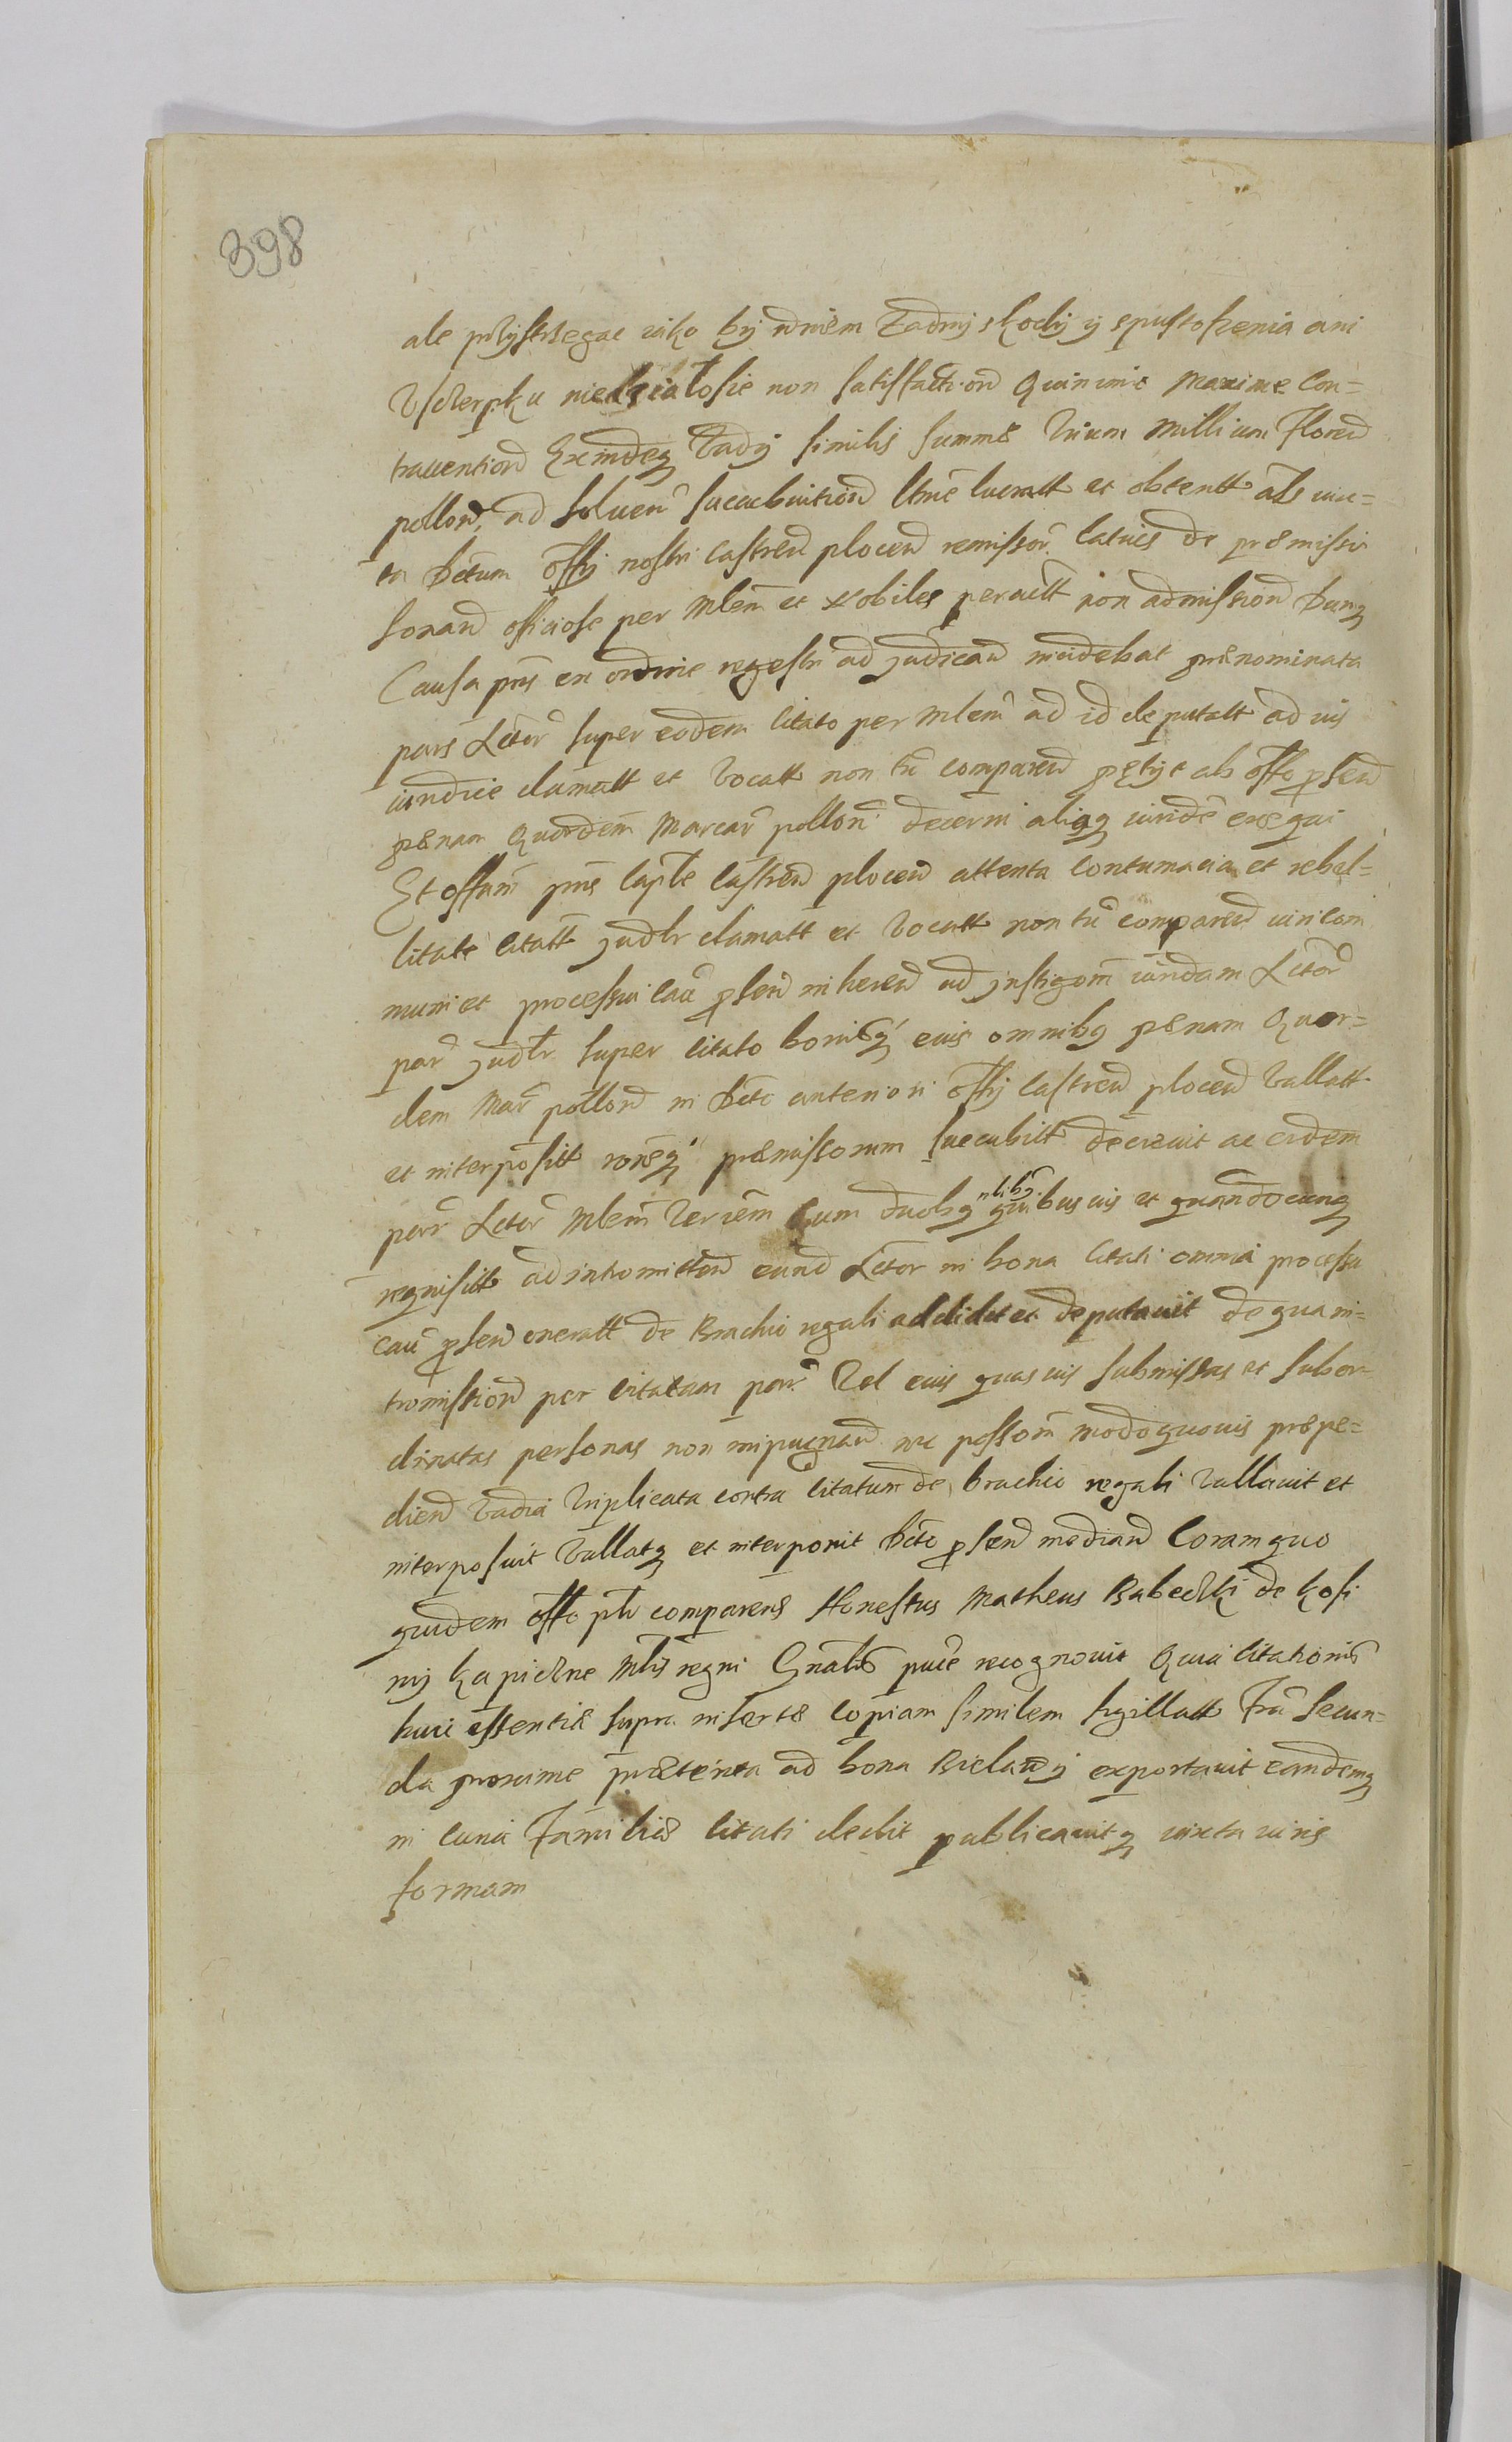 398
ale przystrzegac iako by w niem zadny szkody y spustoszenia ani
Vsczerpku niedzialo sie non satisfaction Quinimo Maxime Con=
trauention Exindeq Vady similis summæ trium Millium Floren
pollon ad soluen succubuition ltme lucratt et obtentt als iux=
ta Dctum Offy nostri Castren plocen remissor latius de præmissis
sonan officiose per Mlem et Nobiles peractt non admission Dumq
Causa pns ex ordine regestri ad judican incidebat prænominata
pars Actor super eodem citato per Mlem ad id deputatt ad vis
iuridice clamatt et vocatt non tn comparen petyt ab offo psen
pænam Quordem Marcar pollon decerni aliaq iuride exequi
Et offum pns Caple Castren plocen attenta contumacia et rebel=
litate citatt judlr clamatt et vocatt non tn comparen iuri com
muni et processui cau psen inheren ad instigom eandam Actor
par judlr super citato bonisq eius omnibq pænam Quor=
dem Mar pollon in Dcto anteriori Offy Castren plocen vallatt
et interpositt roneq præmissorum succubitt decreuit ac eidem
par Actor Mlem terrem cum duobq nlibq quibusuis et quandocunq
requisitt ad intromitten eund Actor in bona citati omnia processu
cau psen oneratt de Brachio regali addidit et deputauit de qua in=
tromission per citatam par vel eius quasuis submissas et subor
dinatas personas non impugnan nec possom modoquouis præpe=
dien vadia triplicata contra citatum de brachio regali vallauit et
interposuit vallatq et interponit Dcto psen median Coram quo
quidem offo plr comparens Honestus Matheus Babeczki de Kosi
ny Kapiczne Mlis regni Gnalis puce recognouit Quia citationis
huic essentiæ supra insertæ copiam similem sigillatt Fra secun=
da proxime præterita ad bona Bielawy exportauit eandemq
in curia Familiæ citati dedit publicauitq iuxta iuris
formam